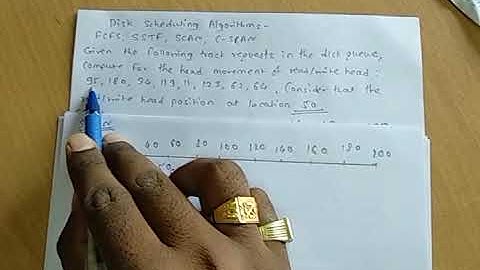 Disk Scheduling Algorithms-
FCFS, SSTF, SCAN, C-SCAN
Given the following track requests in the disk queue,
Compute for the head movement of read/write head:
95, 180, 34, 119, 11, 123, 62, 64, Consider that the
read/write head position at location 50.
40 60 80 100 120 140 160 180 200